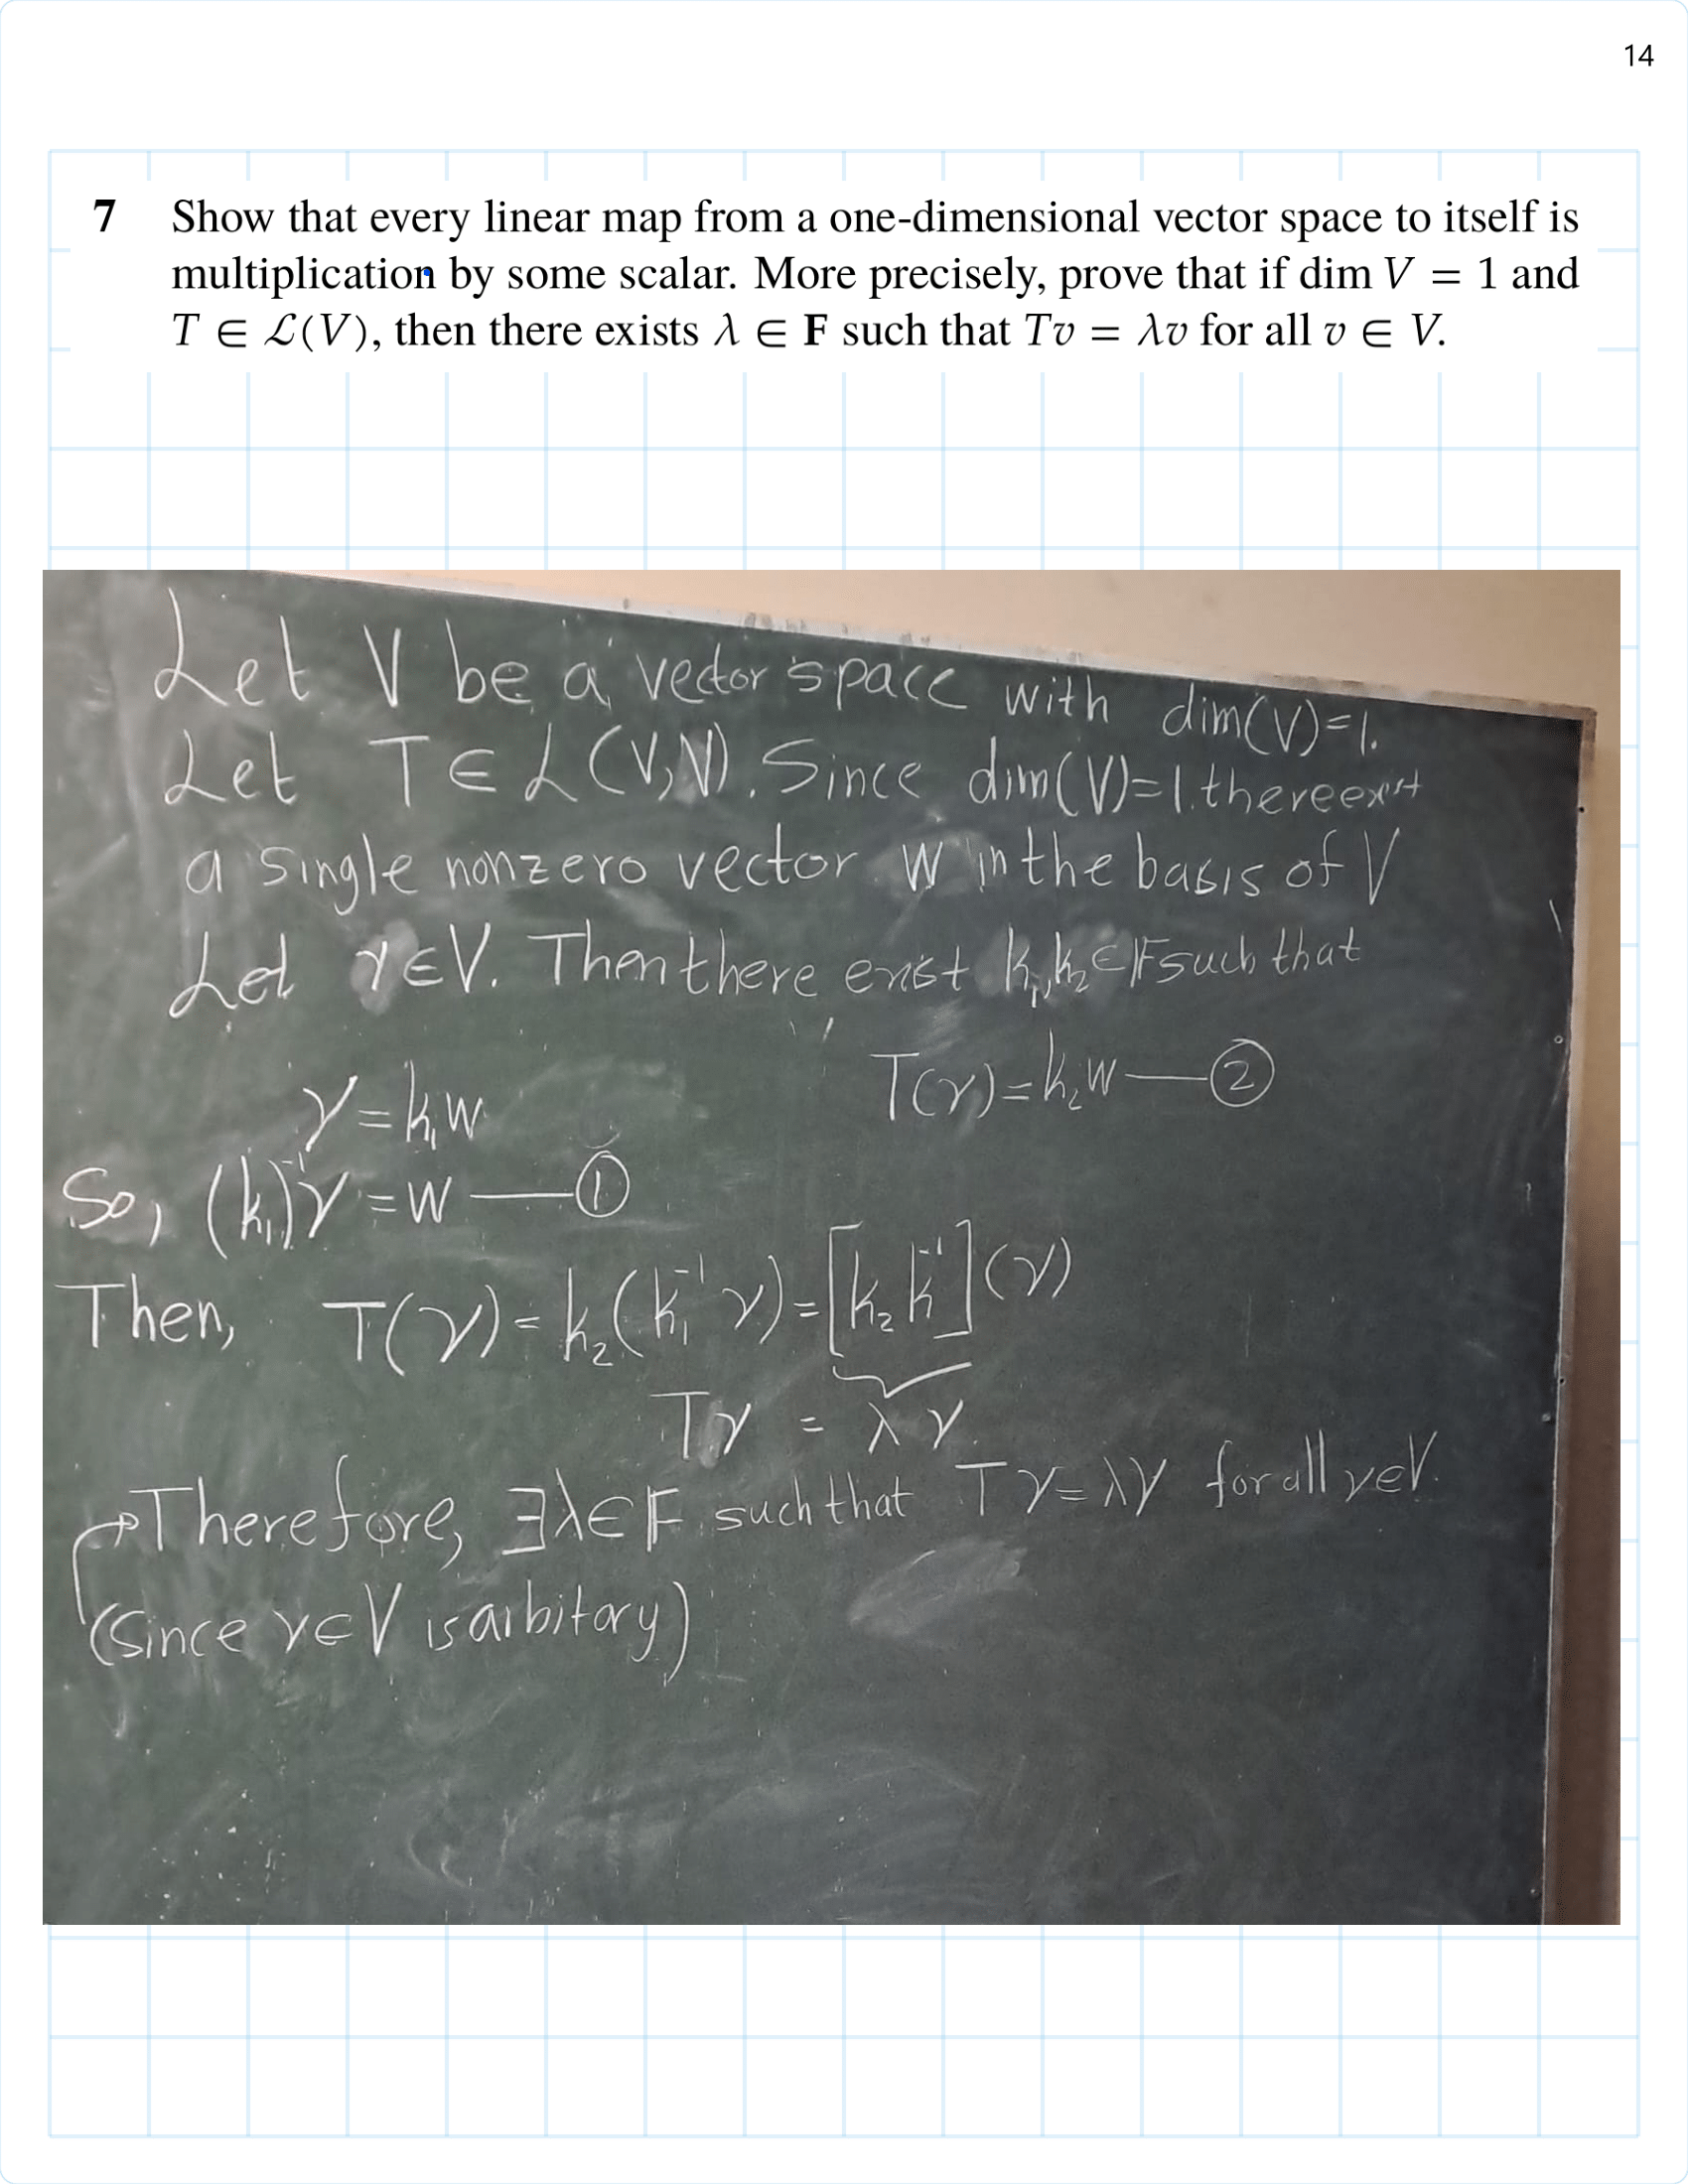 14
7 Show that every linear map from a one-dimensional vector space to itself is
multiplication by some scalar. More precisely, prove that if dim V = 1 and
T ∈ ℒ(V), then there exists λ ∈ F such that Tv = λv for all v ∈ V.
Let V be a vector space with dim(V)=1.
Let T ∈ L(V,V). Since dim(V)=1. there exist
a single nonzero vector W in the basis of V
Let γ∈V. Then there exist k₁,k₂∈F such that
γ = k₁W T(γ)=k₂W — ②
So, (k₁)⁻¹γ = W — ①
Then, T(γ) = k₂(k₁⁻¹ γ) = [k₂ k⁻¹](γ)
Tγ = λ γ.
Therefore, ∃λ∈F such that Tγ=λγ for all γ∈V.
(Since γ∈V is arbitory)